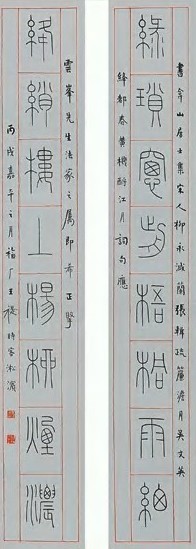 書弇山居士集宋人柳永減蘭張輯疏簾澹月吳文英
綠瑣窗前梧桐雨細
絳都春黃機酹江月詞句應
雲峯先生法家之屬即希正掔
絳綃樓上楊柳煙濃
丙戌嘉平之月福厂王禔時客淞濱